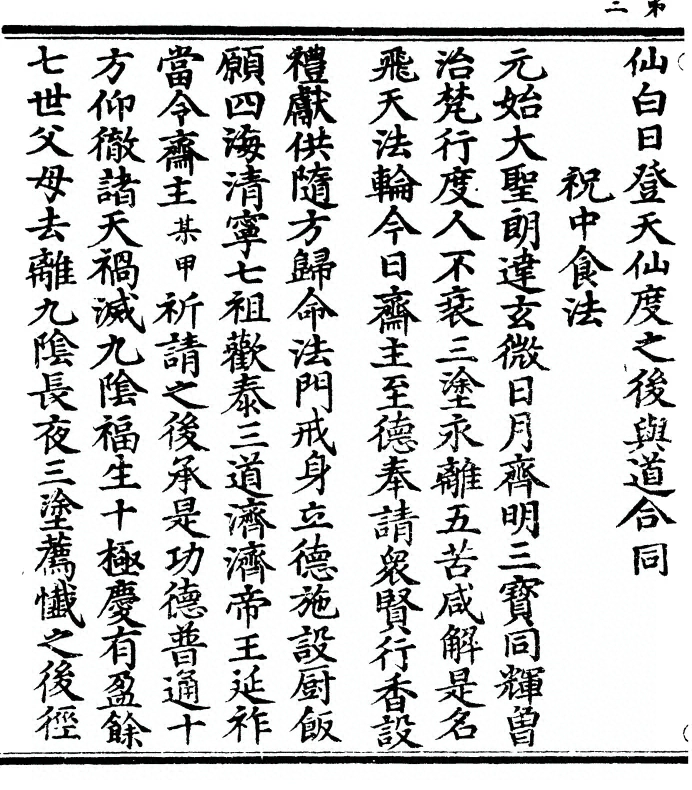 第二
仙白日登天仙度之後與道合同
祝中食法
元始大聖朗達玄微日月齊明三寶同輝曽
治梵行度人不衰三塗永離五苦咸解是名
飛天法輪今日齋主至德奉請衆賢行香設
禮獻供隨方歸命法門戒身立德施設厨飯
願四海清寧七祖歡泰三道濟濟帝王延祚
當令齋主某甲祈請之後承是功德普通十
方仰徹諸天禍滅九陰福生十極慶有盈餘
七世父母去離九陰長夜三塗薦懺之後徑